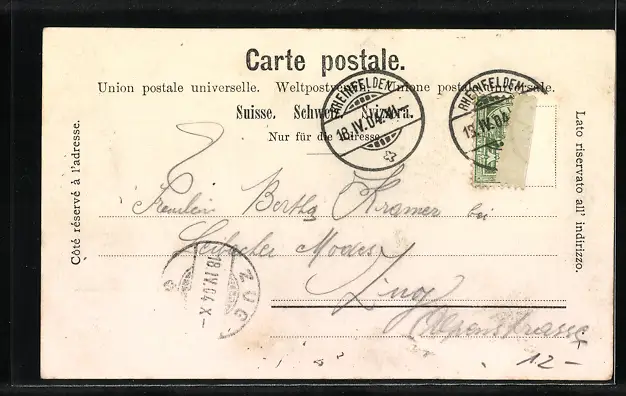 Carte postale.
Union postale universelle. Weltpostverein. Unione postale universale.
Suisse. Schweiz. Svizzera.
Nur für die Adresse.
Côté réservé à l'adresse.
Lato riservato all' indirizzo.
RHEINFELDEN
18.IV.04.XI-
RHEINFELDEN
18.IV.04.
Fräulein Bertha Kramer bei
Modes
Zug
Alpenstrasse
ZUG
18 IV.04 X-
12-